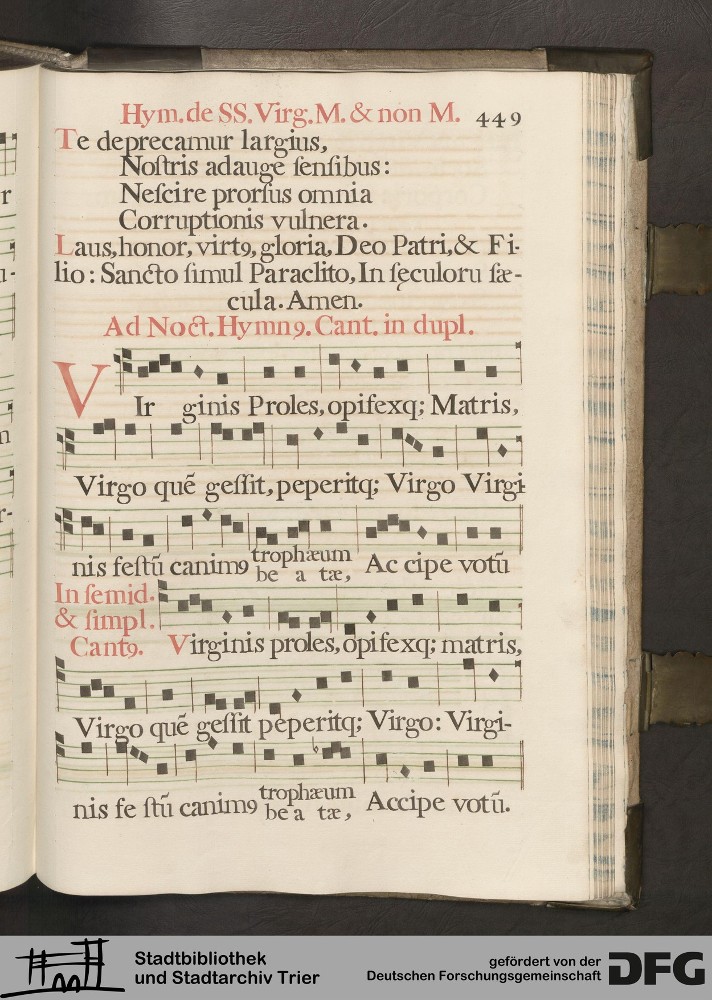 Hym. de SS. Virg. M. & non M. 449
Te deprecamur largius,
Noſtris adauge ſenſibus:
Neſcire prorſus omnia
Corruptionis vulnera.
Laus, honor, virt9, gloria, Deo Patri, & Fi-
lio: Sancto ſimul Paraclito, In ſęculoru ſæ-
cula. Amen.
Ad Noct. Hymn9. Cant. in dupl.
VIr ginis Proles, opifexq; Matris,
Virgo quē geſſit, peperitq; Virgo Virgi-
nis feſtū canim9 trophæum Ac cipe votū
be a tæ,
In ſemid.
& ſimpl.
Cant9. Virginis proles, opifexq; matris,
Virgo quē geſſit peperitq; Virgo: Virgi-
nis fe ſtū canim9 trophæum Accipe votū.
be a tæ,
Stadtbibliothek
und Stadtarchiv Trier
gefördert von der
Deutschen Forschungsgemeinschaft DFG